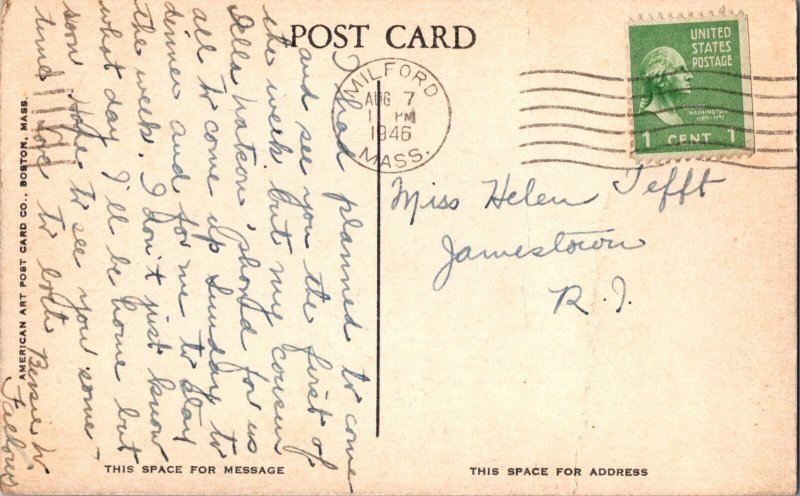 POST CARD
UNITED
STATES
POSTAGE
WASHINGTON
1789-1797
1 CENT 1
MILFORD
AUG 7
1 PM
1946
MASS.
I had planned to come
and see you the first of
the week but my cousin
Ella Watson 'phoned for us
all to come up Sunday to
dinner and for me to stay
the week. I don't just know
what day I'll be home but
soon. Hope to see you some-
time. Love to both
Bessie W.
Fallows
Miss Helen Tefft
Jamestown
R.I.
AMERICAN ART POST CARD CO., BOSTON, MASS.
THIS SPACE FOR MESSAGE
THIS SPACE FOR ADDRESS